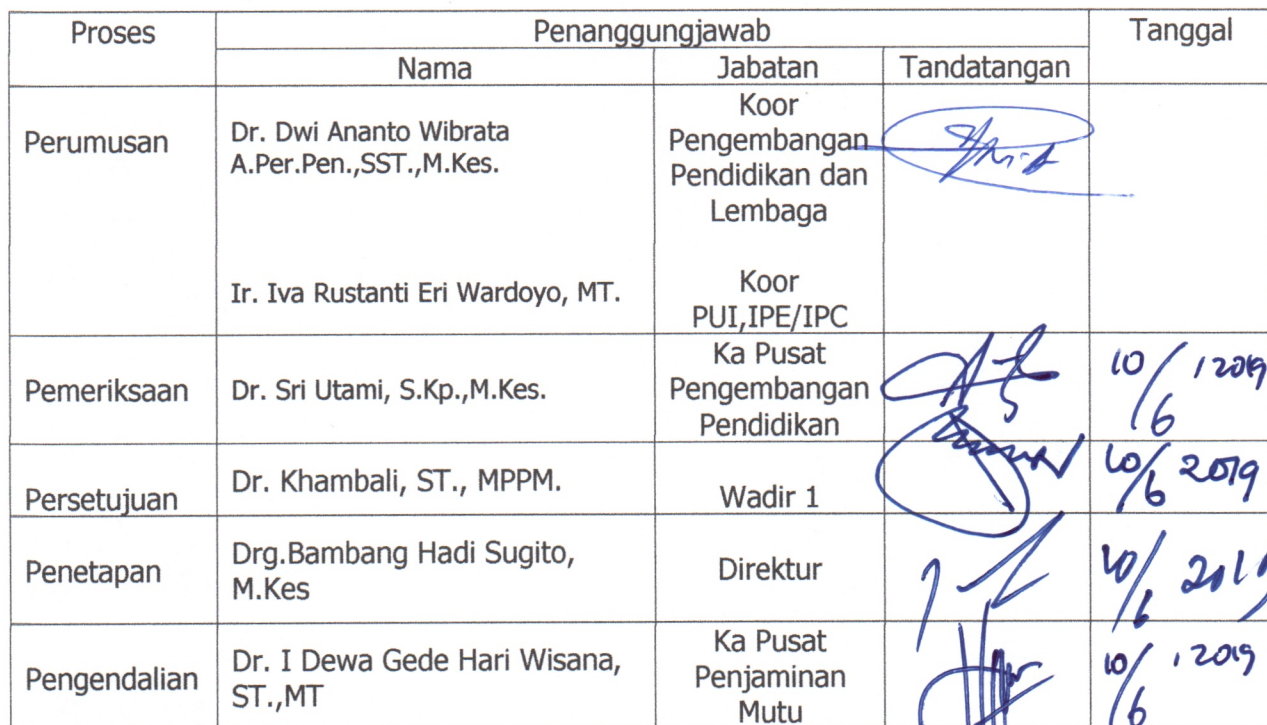 Proses
Penanggungjawab
Tanggal
Nama
Jabatan
Tandatangan
Perumusan
Dr. Dwi Ananto Wibrata
A.Per.Pen.,SST.,M.Kes.
Koor
Pengembangan
Pendidikan dan
Lembaga
Ir. Iva Rustanti Eri Wardoyo, MT.
Koor
PUI,IPE/IPC
Pemeriksaan
Dr. Sri Utami, S.Kp.,M.Kes.
Ka Pusat
Pengembangan
Pendidikan
10/6 2019
Persetujuan
Dr. Khambali, ST., MPPM.
Wadir 1
10/6 2019
Penetapan
Drg.Bambang Hadi Sugito,
M.Kes
Direktur
10/6 2019
Pengendalian
Dr. I Dewa Gede Hari Wisana,
ST.,MT
Ka Pusat
Penjaminan
Mutu
10/6 2019